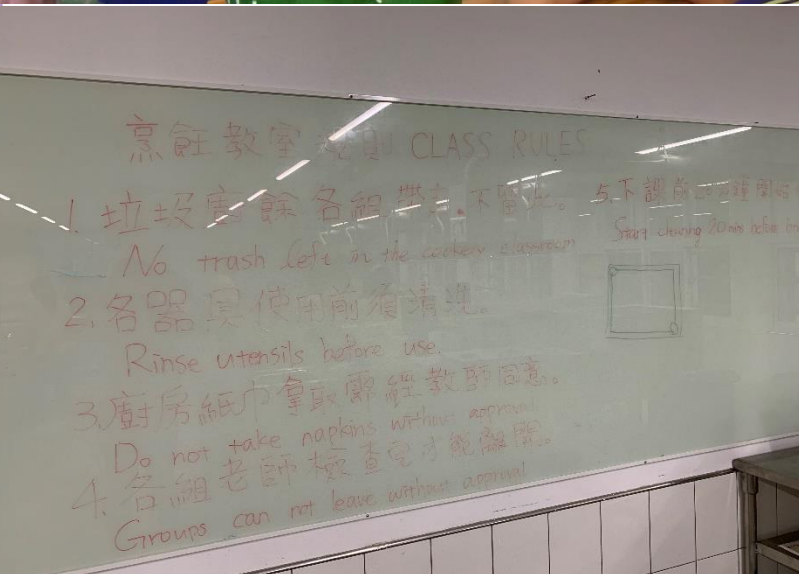 烹飪教室規則 CLASS RULES
1. 垃圾廚餘各組帶走。不留此。
No trash left in the cookery classroom
2. 各器具使用前須清洗。
Rinse utensils before use.
3. 廚房紙巾拿取需經教師同意。
Do not take napkins without approval
4. 各組老師檢查完才能離開。
Groups can not leave without approval
5. 下課前20分鐘開始
Start cleaning 20mins before